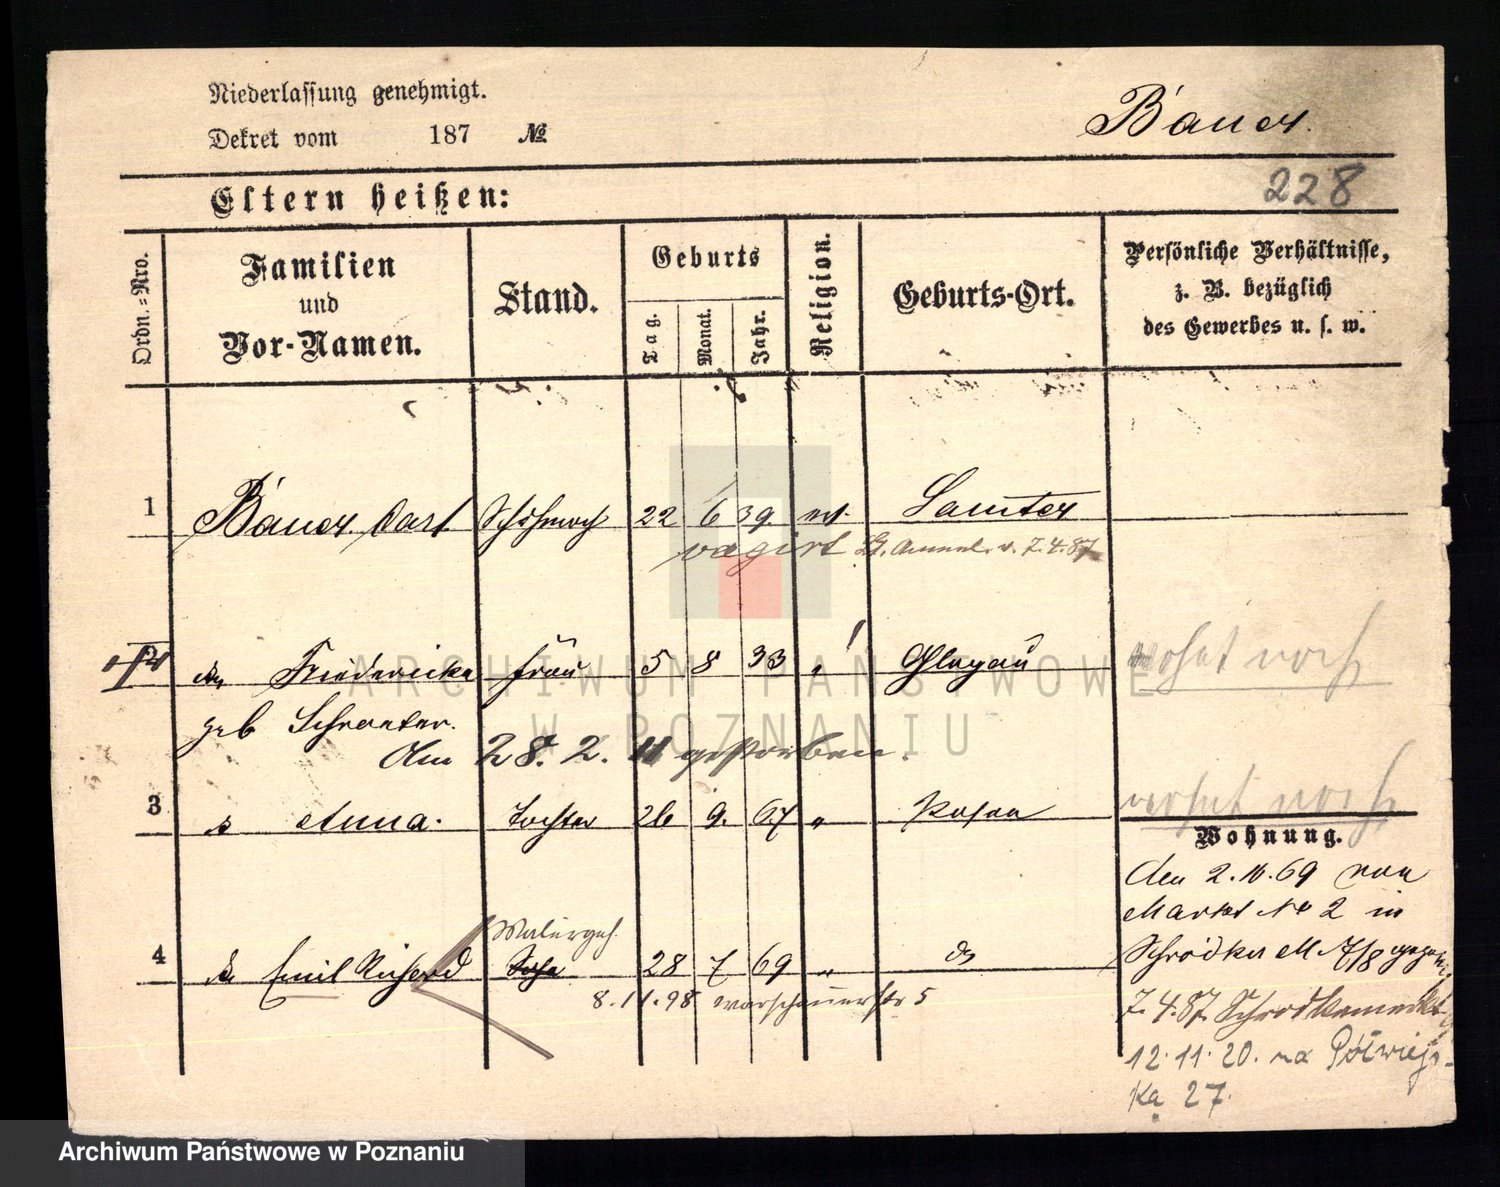 Niederlassung genehmigt.
Dekret vom 187 №
Bauer.
Eltern heißen:
228
Ordn.-Nro.
Familien
und
Vor-Namen.
Stand.
Geburts
Tag.
Monat.
Jahr.
Religion.
Geburts-Ort.
Persönliche Verhältnisse,
z. B. bezüglich
des Gewerbes u. s. w.
1 Bauer, Carl 22 6 39 ev. Samter
vagirt v. 7.4.87
2 Friedericke Frau 5 8 33 „ Glogau
wohnt noch
geb Schroeter.
Am 28. 2. 11 gestorben.
3 Anna. Tochter 26 9. 67 „ Posen
wohnt noch
Wohnung.
Den 2.10.69 von
Markt No 2 in
4 Emil Richard Malergeh. Sohn 28 7 69 „ do
Schrodka M. 7/8
8.11.98 Warschauerstr 5
7.4.87. Schrodkamarkt
12.11.20. na Półwiejs-
ką 27.
ARCHIWUM PAŃSTWOWE
W POZNANIU
Archiwum Państwowe w Poznaniu